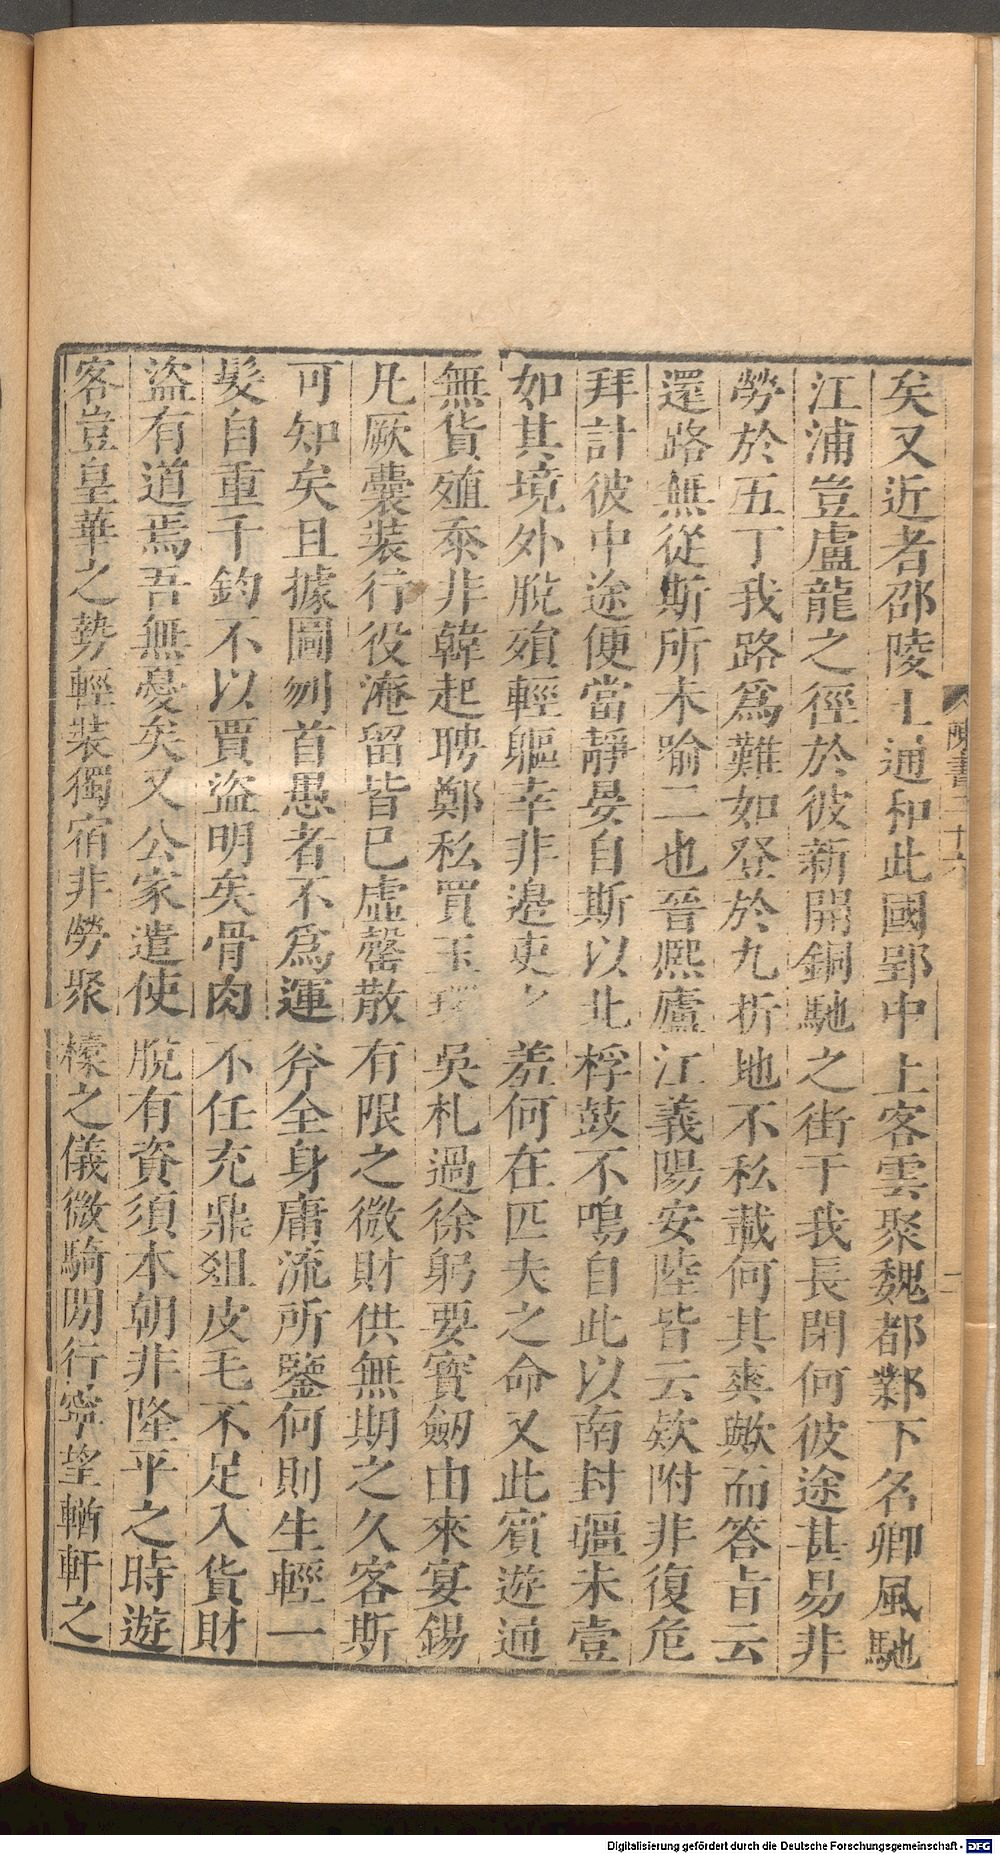 陳書二十六
二
矣又近者邵陵王通和此國郢中上客雲聚魏都鄴下名卿風馳
江浦豈盧龍之徑於彼新開銅馳之街于我長閉何彼途甚易非
勞於五丁我路爲難如登於九折地不私載何其爽歟而答旨云
還路無從斯所未喻二也晉熙廬江義陽安陸皆云欵附非復危
拜計彼中途便當靜晏自斯以北桴鼓不鳴自此以南封疆未壹
如其境外脫殞輕軀幸非邊吏之羞何在匹夫之命又此賓遊通
無貨殖忝非韓起聘鄭私買玉環吳札過徐躬要寶劒由來宴錫
凡厥囊裝行役淹留皆已虛罄散有限之微財供無期之久客斯
可知矣且據圖刎首愚者不爲運斧全身庸流所鑒何則生輕一
髮自重千鈞不以賈盜明矣骨肉不任充鼎俎皮毛不足入貨財
盜有道焉吾無憂矣又公家遣使脫有資須本朝非隆平之時遊
客豈皇華之勢輕裝獨宿非勞聚櫜之儀微騎閒行寧望輶軒之
Digitalisierung gefördert durch die Deutsche Forschungsgemeinschaft - DFG